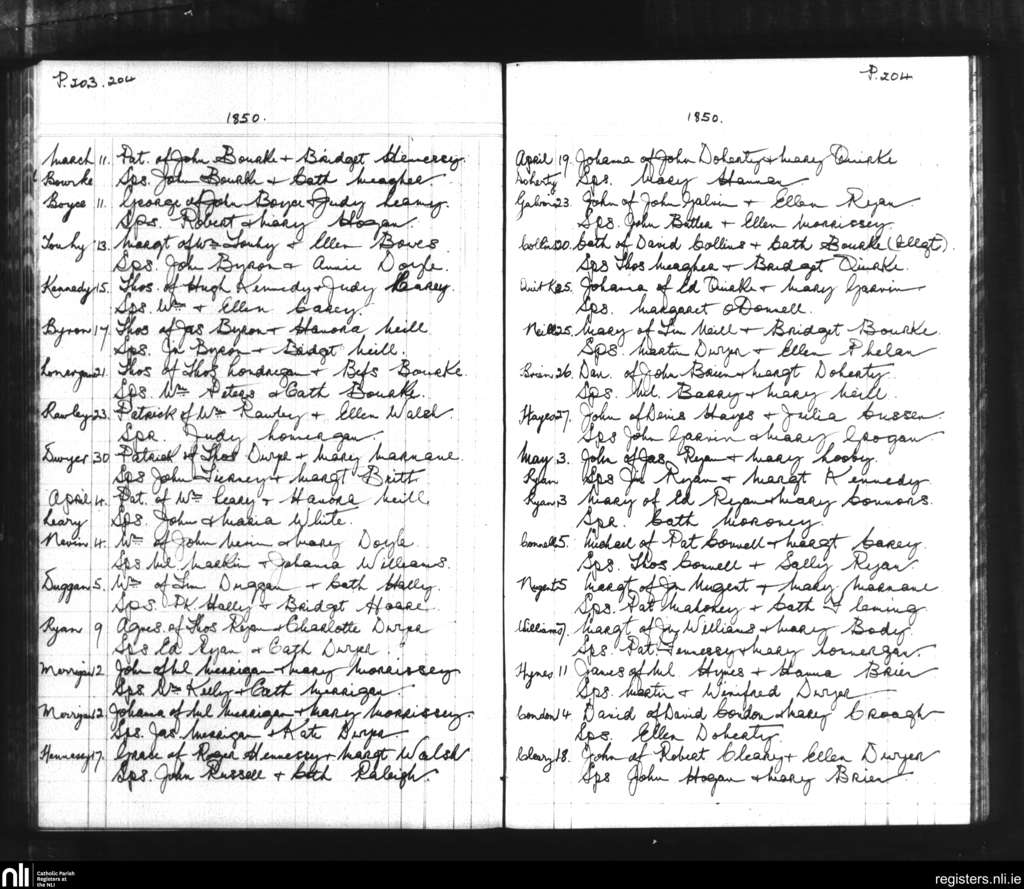 P. 203. 204
1850.
March 11. Pat. of John Bourke + Bridget Hennessy.
Bourke Sps. John Bourke + Cath Meagher.
Boyce 11. George of John Boyce + Judy Leamy.
Sps. Robert + Mary Hogan.
Touhy 13. Margt of Wm Touhy + Ellen Boves
Sps. John Byron + Annie Doyle.
Kennedy 15. Thos. of Hugh Kennedy + Judy Carey.
Sps. Wm + Ellen Carey.
Byron 17. Thos of Jas Byron + Hanora Neill.
Sps. Jn Byron + Bridgt Neill.
Lonergan 21. Thos of Thos Londrigan + Biss Bourke.
Sps. Wm Peters + Cath Bourke.
Rawley 23. Patrick of Wm Rawley + Ellen Walsh
Spr. Judy Lonnergan.
Dwyer 30 Patrick of Thos Dwyer + Mary Marnane.
Sps John Tierney + Margt Britt
April 4. Pat. of Wm Leary + Hanora Neill
Leary Sps. John + Maria White.
Nevin 4. Wm of John Nevin + Mary Doyle
Sps Ml. Macklin + Johanna Williams.
Duggan 5. Wm of Tim Duggan + Cath Hally.
Sps. Pk Hally + Bridget Hoare.
Ryan 9 Agnes of Thos Ryan + Charlotte Dwyer
Sps Ed Ryan + Cath Dwyer.
Merrigan 12 John of Ml Merrigan + Mary Morrissey
Sps Wm Keely + Cath Merrigan.
Merrigan 12. Johana of Ml Merrigan + Mary Morrissey.
Sps. Jas Merrigan + Kate Dwyer
Hennessy 17. Grace of Roger Hennessy + Margt Walsh
Sps. John Russell + Cath Raleigh
P. 204
1850.
April 19. Johanna of John Doherty + Mary Quirke
Doherty Sps. Mary Hannan
Galvin 23. John of John Galvin + Ellen Ryan
Sps. John Butler + Ellen Morrissey.
Collins 20. Cath of David Collins + Cath Bourke (Illegt).
Sps Thos Meagher + Bridget Quirke.
Quirk 25. Johanna of Ed Quirke + Mary Garvin
Sps. Margaret O'Donnell.
Neill 25. Mary of Tim Neill + Bridget Bourke.
Sps. Martin Dwyer + Ellen Phelan
Brien 26. Dan. of John Brien + Margt Doherty.
Sps. Ml. Barry + Mary Neill.
Hayes 27. John of Denis Hayes + Julia Cussen.
Sps John Garvin + Mary Grogan
May 3. John of Jas Ryan + Mary Looby.
Ryan Sps Jn Ryan + Margt Kennedy
Ryan 3 Mary of Ed Ryan + Mary Connors.
Spr. Cath Moroney.
Connell 5. Michael of Pat Connell + Margt Carey
Sps. Thos Connell + Sally Ryan
Nugent 5 Margt of Jn Nugent + Mary Marnane
Sps. Pat Mahoney + Cath Leming
Williams 7. Margt of Jn Williams + Mary Body.
Sps. Pat Hennessy + Mary Lonnergan.
Hynes 11 James of Ml Hynes + Hanna Brien
Sps. Martin + Winifred Dwyer
Condon 14. David of David Condon + Mary Croagh
Sps. Ellen Doherty
Cleary 18. John of Robert Cleary + Ellen Dwyer
Sps John Hogan + Mary Brien
nli Catholic Parish Registers at the NLI
registers.nli.ie